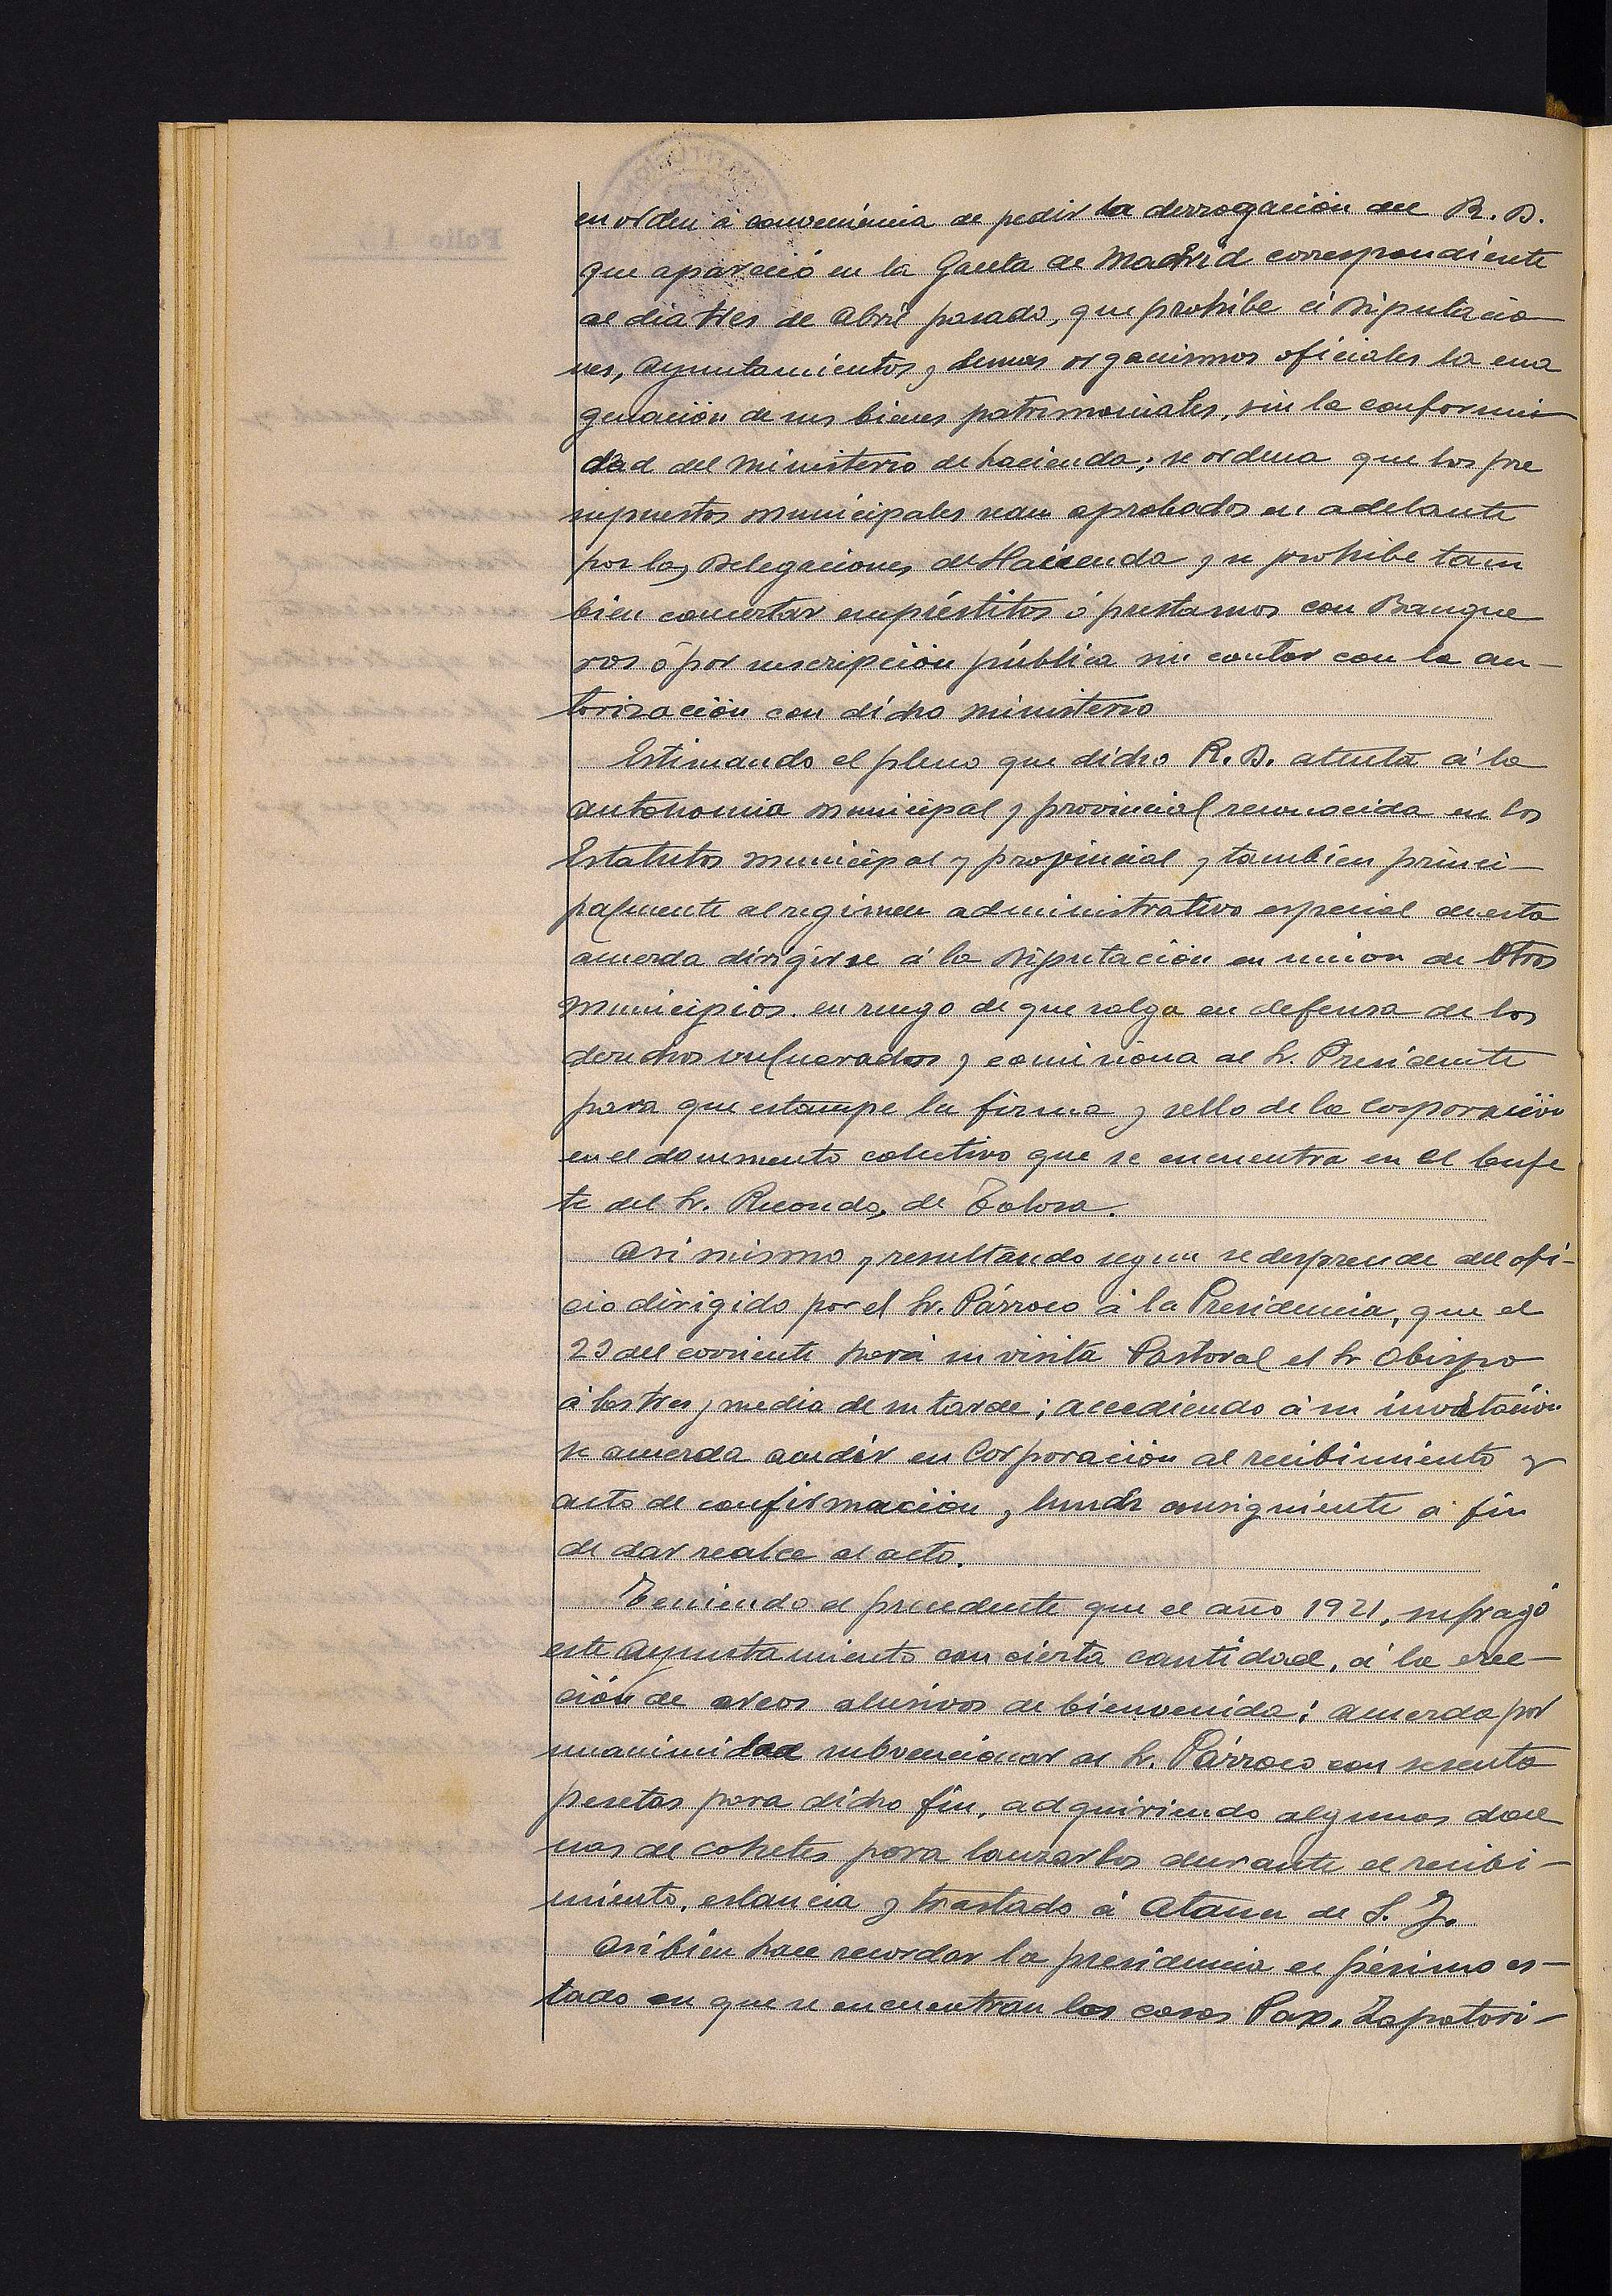 en orden á conveniencia de pedir la derrogación del R. D.
que apareció en la Gaceta de Madrid correspondiente
al dia tres de Abril pasado, que prohibe á Diputacio
nes, Ayuntamientos y demas organismos oficiales la ena
genación de sus bienes patrimoniales, sin la conformi
dad del Ministerio de hacienda; se ordena que los pre
supuestos municipales sean aprobados en adelante
por las Delegaciones de Hacienda y se prohibe tam
bien concertar empréstitos ó prestamos con Banque
ros ó por suscripción pública sin contar con la au-
torización con dicho Ministerio
Estimando el pleno que dicho R. D. atenta á la
autonomia municipal y provincial reconocida en los
Estatutos municipal y provincial y tambien princi-
palmente al regimen administrativo especial de esta
acuerda dirigirse á la Diputación en union de otros
Municipios en ruego de que salga en defensa de los
derechos vulnerados y comisiona al Sr. Presidente
para que estampe la firma y sello de la Corporación
en el documento colectivo que se encuentra en el bufe
te del Sr. Recondo, de Tolosa.
Asi mismo y resultando segun se desprende del ofi-
cio dirigido por el Sr. Párroco á la Presidencia, que el
23 del corriente hará su visita Pastoral el Sr Obispo
á las tres y media de su tarde; accediendo á su invitación
se acuerda acudir en Corporación al recibimiento y
acto de confirmación y lunch consiguiente a fin
de dar realce al acto.
Teniendo el precedente que el año 1921, sufragó
este Ayuntamiento con cierta cantidad, á la erec-
ción de arcos alusivos de bienvenida; acuerda por
unanimidad subvencionar al Sr. Párroco con sesenta
pesetas para dicho fin, adquiriendo algunos doce
nas de cohetes para lanzarlos durante el recibi-
miento, estancia y traslado á Ataun de S. I.
Asi bien hace recordar la presidencia el pésimo es-
tado en que se encuentran las casas Pax, Zapatari-
Folio 1